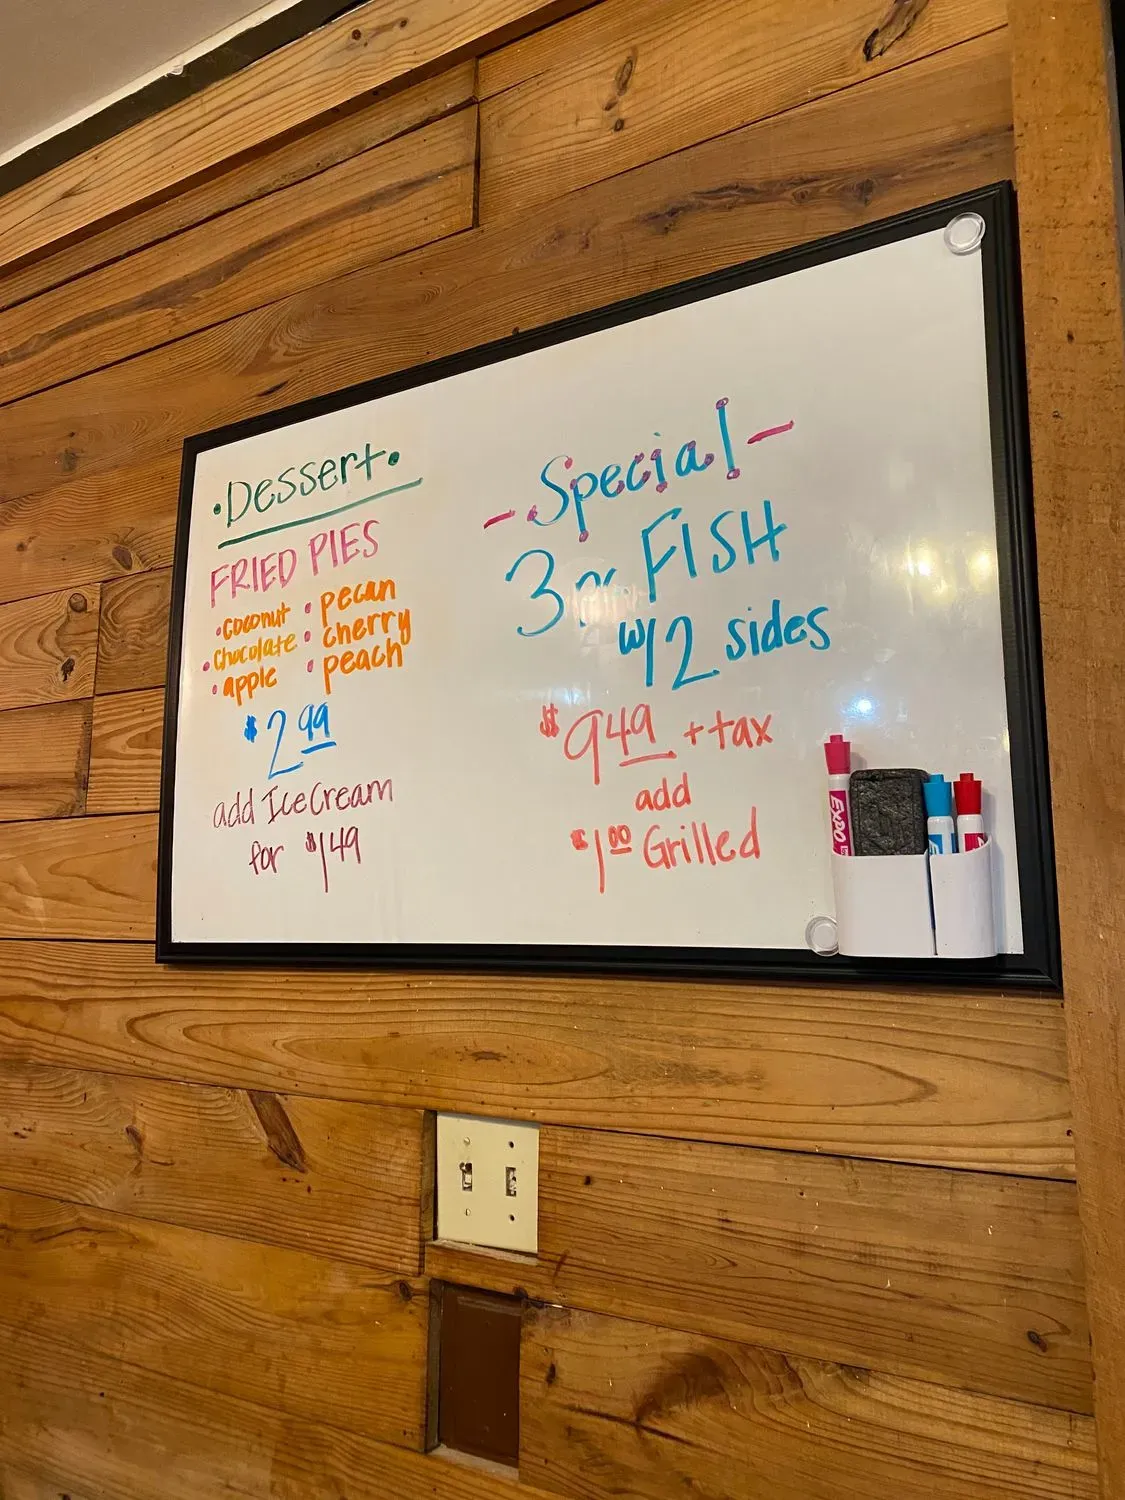 ·Dessert·
FRIED PIES
·coconut ·pecan
·chocolate ·cherry
·apple ·peach
$2.99
add Ice Cream
for $1.49
-Special-
3 pc FISH
w/2 sides
$9.49 + tax
add
$1.00 Grilled
EXPO